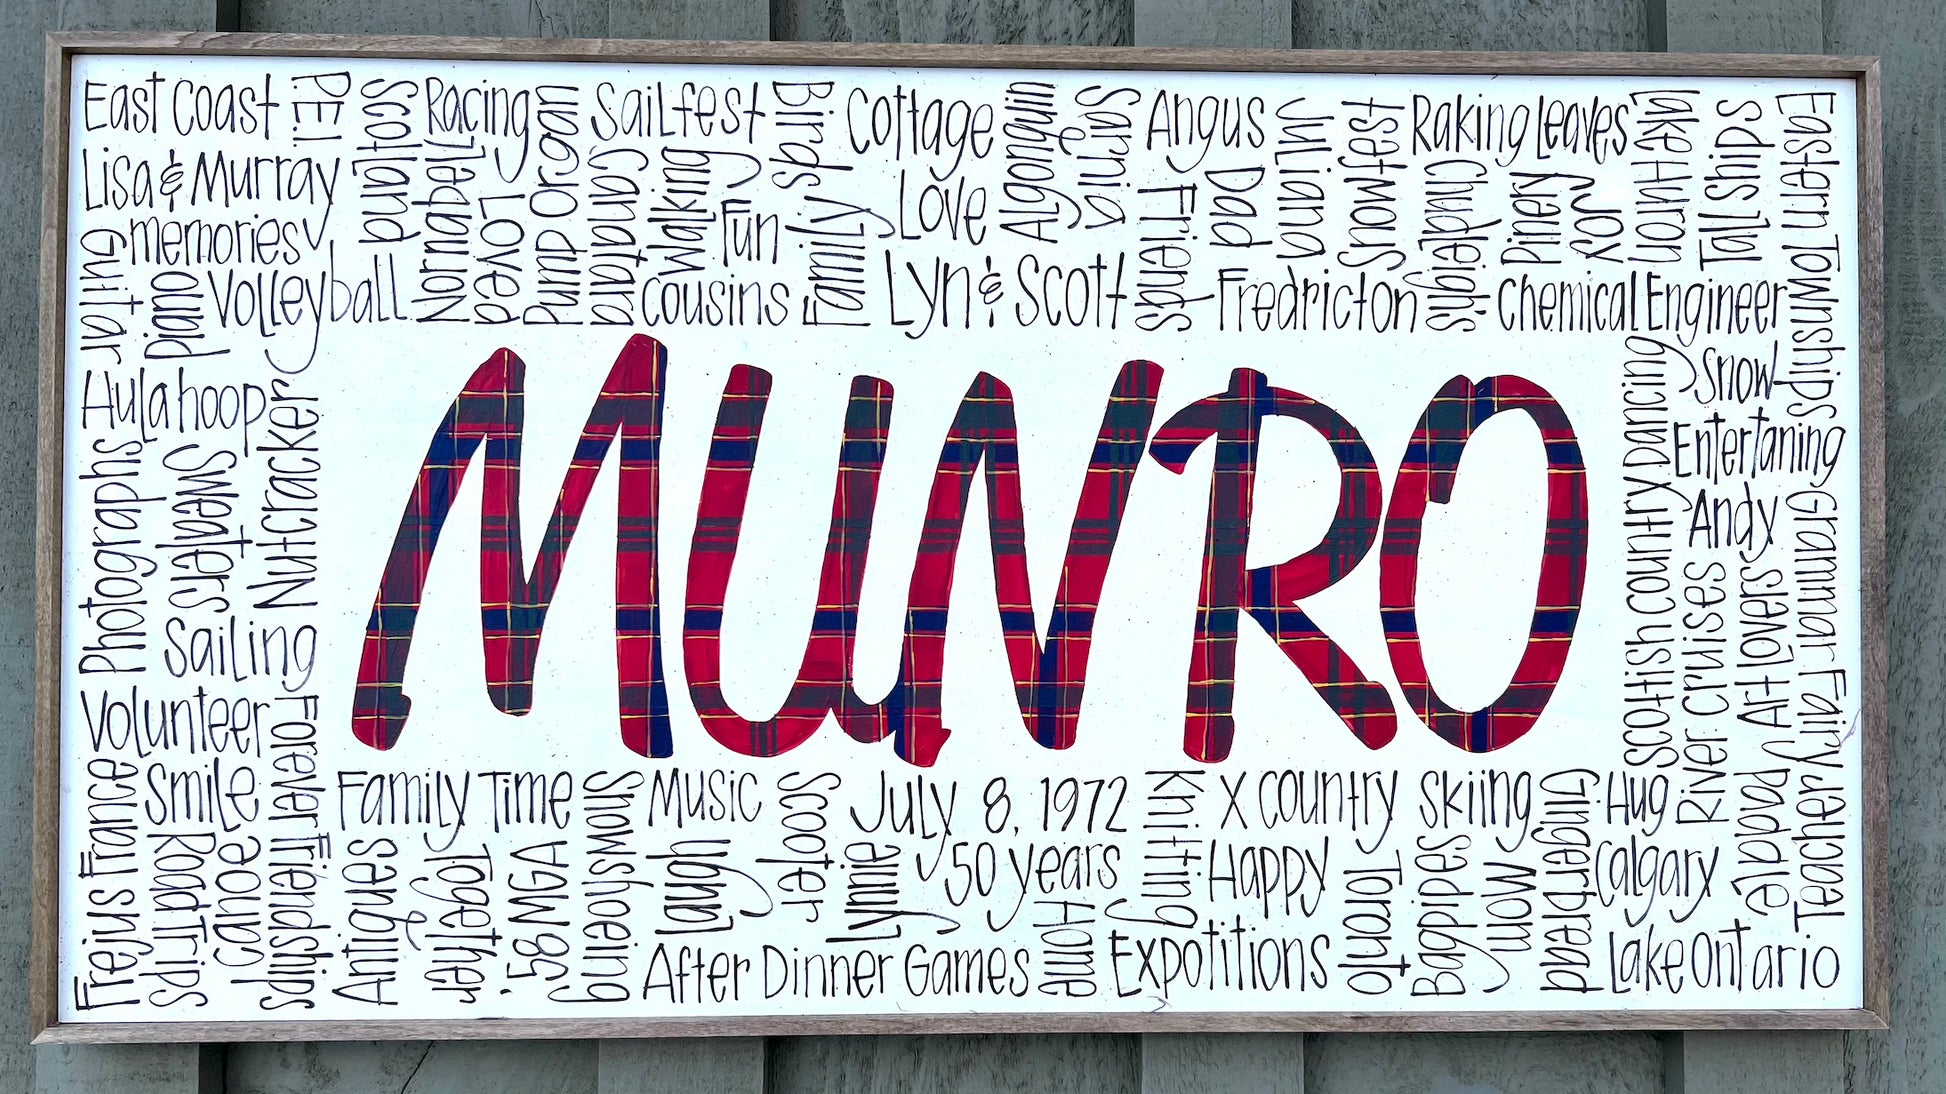 East Coast
P.E.I.
Scotland
Racing
Pump Organ
Sailfest
Birds
Cottage
Algonquin
Sarnia
Angus
Juliana
Snowfest
Raking Leaves
Lake Huron
Tall Ships
Eastern Townships
Lisa & Murray
Normapel
Loveda
Cantara
Walking
Fun
Family
Love
Friends
Dad
Chudleigh's
Pinery
Joy
memories
Guitar
Piano
Volleyball
Cousins
Lyn & Scott
Fredricton
Chemical Engineer
Hula hoop
Nutcracker
MUNRO
Scottish Country Dancing
Snow
Entertaining
Photographs
Sweaters
Andy
Grammar Fairy
Sailing
River Cruises
Art Lovers
Volunteer
Forever Friendships
Frejus France
Smile
Road Trips
Canoe
Family Time
Snowshoeing
Music
Scooter
July 8, 1972
Knitting
X Country Skiing
Gingerbread
Hug
Paddle
Teacher
Antiques
Together
'58 MGA
Laugh
Lynnie
50 years
Home
Happy
Toronto
Bagpipes
Mom
Calgary
After Dinner Games
Expotitions
Lake Ontario